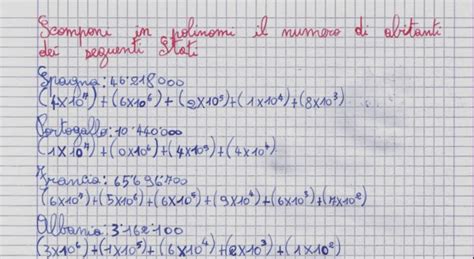 Scomponi in polinomi il numero di abitanti
dei seguenti Stati
Spagna: 46˙218˙000
(4x10⁷)+(6x10⁶)+(2x10⁵)+(1x10⁴)+(8x10³)
Portogallo: 10˙440˙000
(1x10⁷)+(0x10⁶)+(4x10⁵)+(4x10⁴)
Francia: 65˙696˙700
(6x10⁷)+(5x10⁶)+(6x10⁵)+(9x10⁴)+(6x10³)+(7x10²)
Albania: 3˙162˙100
(3x10⁶)+(1x10⁵)+(6x10⁴)+(2x10³)+(1x10²)